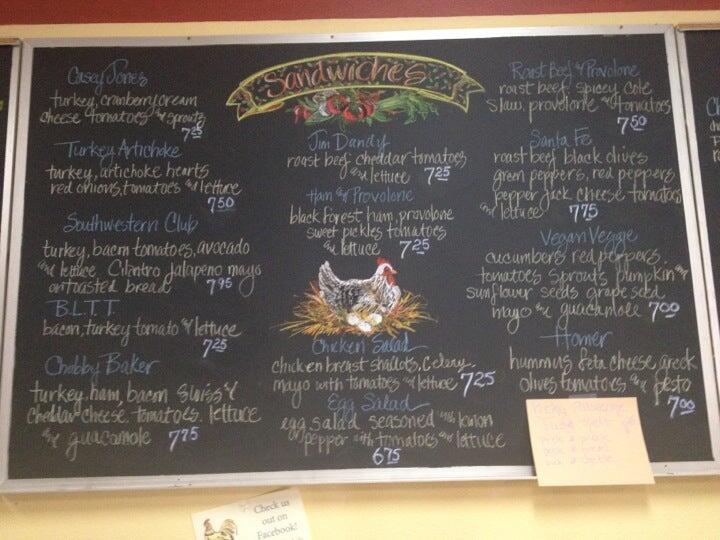 Sandwiches
Casey Jones
turkey, cranberry cream
cheese tomatoes & sprouts
7.25
Turkey Artichoke
turkey, artichoke hearts
red onions, tomatoes & lettuce
7.50
Southwestern Club
turkey, bacon tomatoes, avocado
and lettuce Cilantro jalapeno mayo
on toasted bread 7.95
B.L.T.T.
bacon, turkey tomato & lettuce
7.25
Chabby Baker
turkey, ham, bacon Swiss &
cheddar cheese. tomatoes. lettuce
& guacamole 7.75
Jim Dandy
roast beef cheddar tomatoes
and lettuce 7.25
Ham & Provolone
black forest ham, provolone
sweet pickles tomatoes
& lettuce 7.25
Chicken Salad
chicken breast shallots, Celery
mayo with tomatoes & lettuce 7.25
Egg Salad
egg salad seasoned with
pepper with tomatoes and lettuce
6.75
Roast Beef & Provolone
roast beef, spicy cole
slaw, provolone & tomatoes
7.50
Santa Fe
roast beef black olives
green peppers, red peppers
pepper jack cheese tomatoes
and lettuce 7.75
Vegan Veggie
cucumbers red peppers.
tomatoes sprouts pumpkin &
sunflower seeds grapeseed
mayo & guacamole 7.00
Homer
hummus feta cheese, greek
olives tomatoes & pesto
7.00
Check us
out on
Facebook!